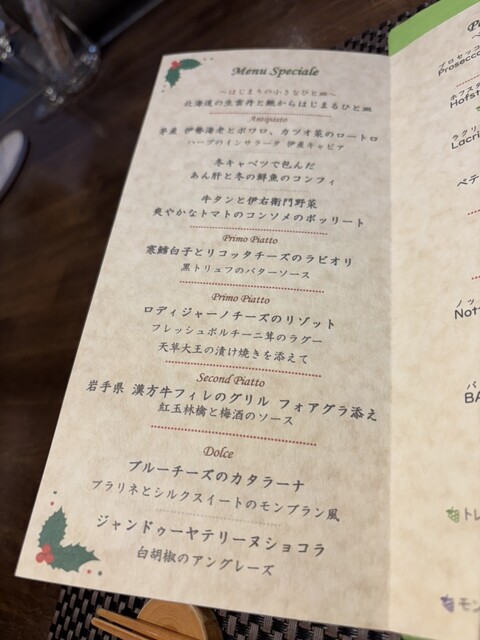 Menu Speciale
～はじまりの小さなひと皿～
北海道の生雲丹と鮑からはじまるひと皿
Antipasto
茅産 伊勢海老とポワロ、カツオ菜のロートロ
ハーブのインサラータ 伊産キャビア
冬キャベツで包んだ
あん肝と冬の鮮魚のコンフィ
牛タンと伊右衛門野菜
爽やかなトマトのコンソメのボッリート
Primo Piatto
寒鱈白子とリコッタチーズのラビオリ
黒トリュフのバターソース
Primo Piatto
ロディジャーノチーズのリゾット
フレッシュポルチーニ茸のラグー
天草大王の漬け焼きを添えて
Second Piatto
岩手県 漢方牛フィレのグリル フォアグラ添え
紅玉林檎と梅酒のソース
Dolce
ブルーチーズのカタラーナ
プラリネとシルクスイートのモンブラン風
ジャンドゥーヤテリーヌショコラ
白胡椒のアングレーズ
プロセッコ
Prosecco
ホフスタ
Hofst
ラクリ
Lacri
ペテ
ノッ
Nott
バ
BA
トレ
モン